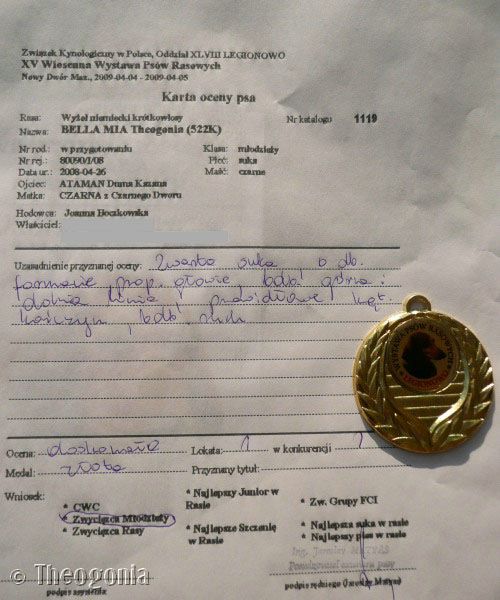 Związek Kynologiczny w Polsce, Oddział XLVIII LEGIONOWO
XV Wiosenna Wystawa Psów Rasowych
Nowy Dwór Maz., 2009-04-04 - 2009-04-05
Karta oceny psa
Rasa: Wyżeł niemiecki krótkowłosy Nr katalogu 1119
Nazwa: BELLA MIA Theogonia (522K)
Nr rod.: w przygotowaniu Klasa: młodzieży
Nr rej.: 80090/I/08 Płeć: suka
Data ur.: 2008-04-26 Maść: czarne
Ojciec: ATAMAN Duma Kazana
Matka: CZARNA z Czarnego Dworu
Hodowca: Joanna Boczkowska
Właściciel:
Uzasadnienie przyznanej oceny: Zwarta suka o db.
formacie, prop. głowie, bdb górna i
dolna linia, prawidłowe kąt.
kończyn, bdb. ruch
WYSTAWA PSÓW RASOWYCH
LEGIONOWO
Ocena: doskonała Lokata: 1 w konkurencji 1
Medal: złoto Przyznany tytuł:
Wniosek:
* CWC * Najlepszy Junior w Rasie * Zw. Grupy FCI
* Zwycięzca Młodzieży * Najlepsza suka w rasie
* Zwycięzca Rasy * Najlepsze Szczenię w Rasie * Najlepszy pies w rasie
podpis asystenta podpis sędziego (Jarosław Matyas)
© Theogonia